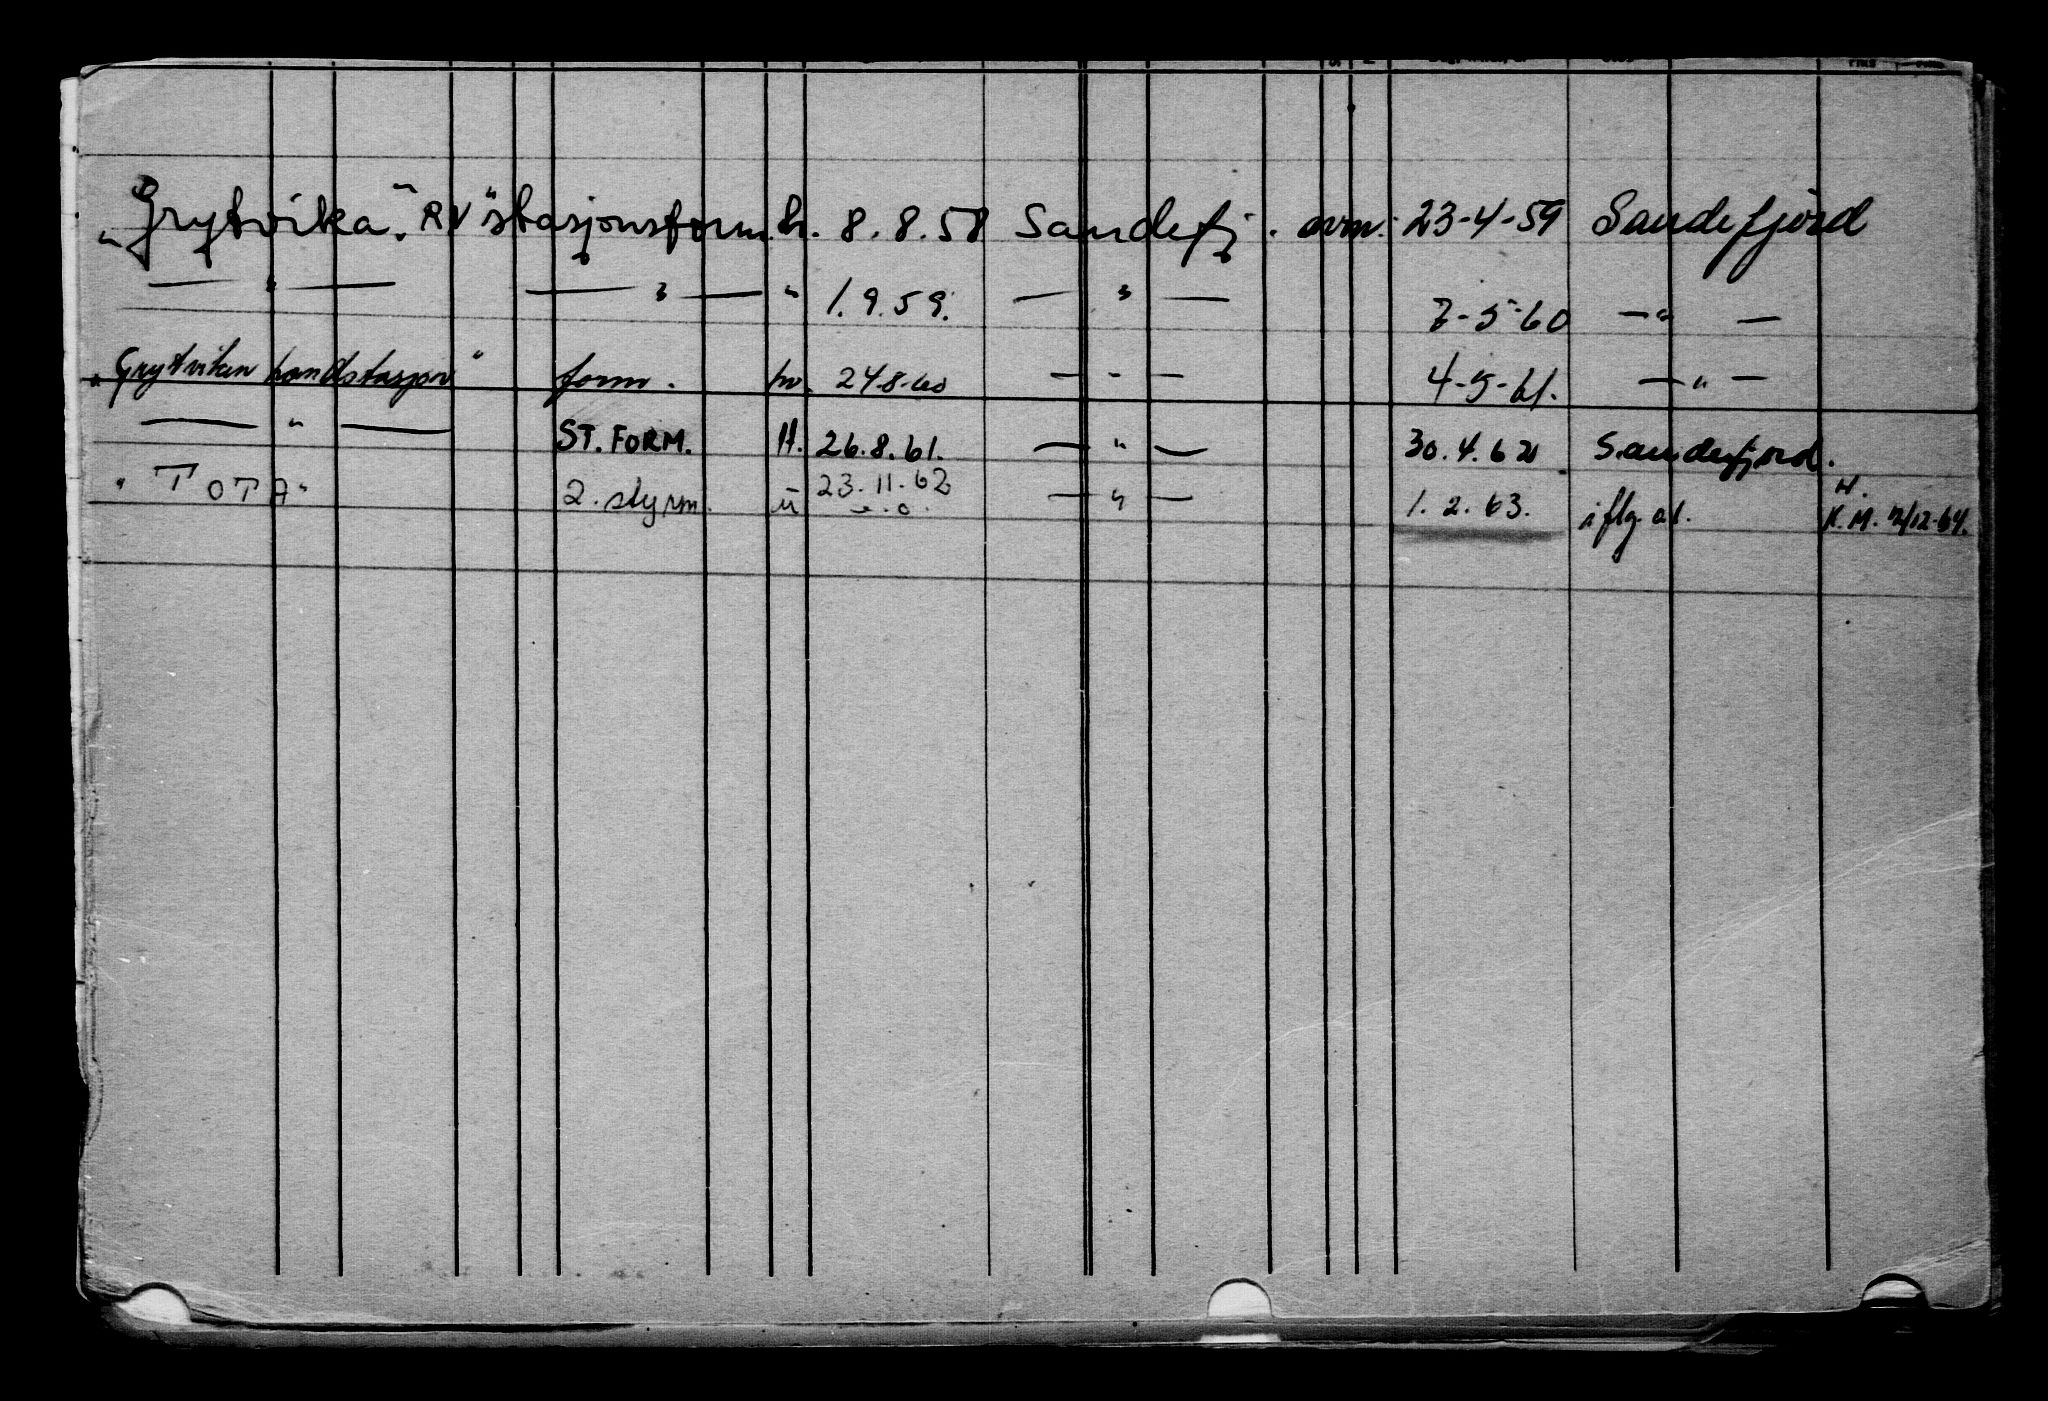 "Grytvika." RV "stasjonsform. h. 8.8.58 Sandefj. avm. 23-4-59 Sandefjord
— " — — " — " 1.9.59. — " — 7-5-60 — " —
"Grytviken landstasjon" form. h. 24.8.60 — " — 4-5-61. — " —
— " — ST. FORM. H. 26.8.61. — " — 30.4.62 Sandefjord.
"TOTA" 2. styrm. u 23.11.62 — " — 1.2.63. iflg. a.l. H. K.M. 2/12-64.